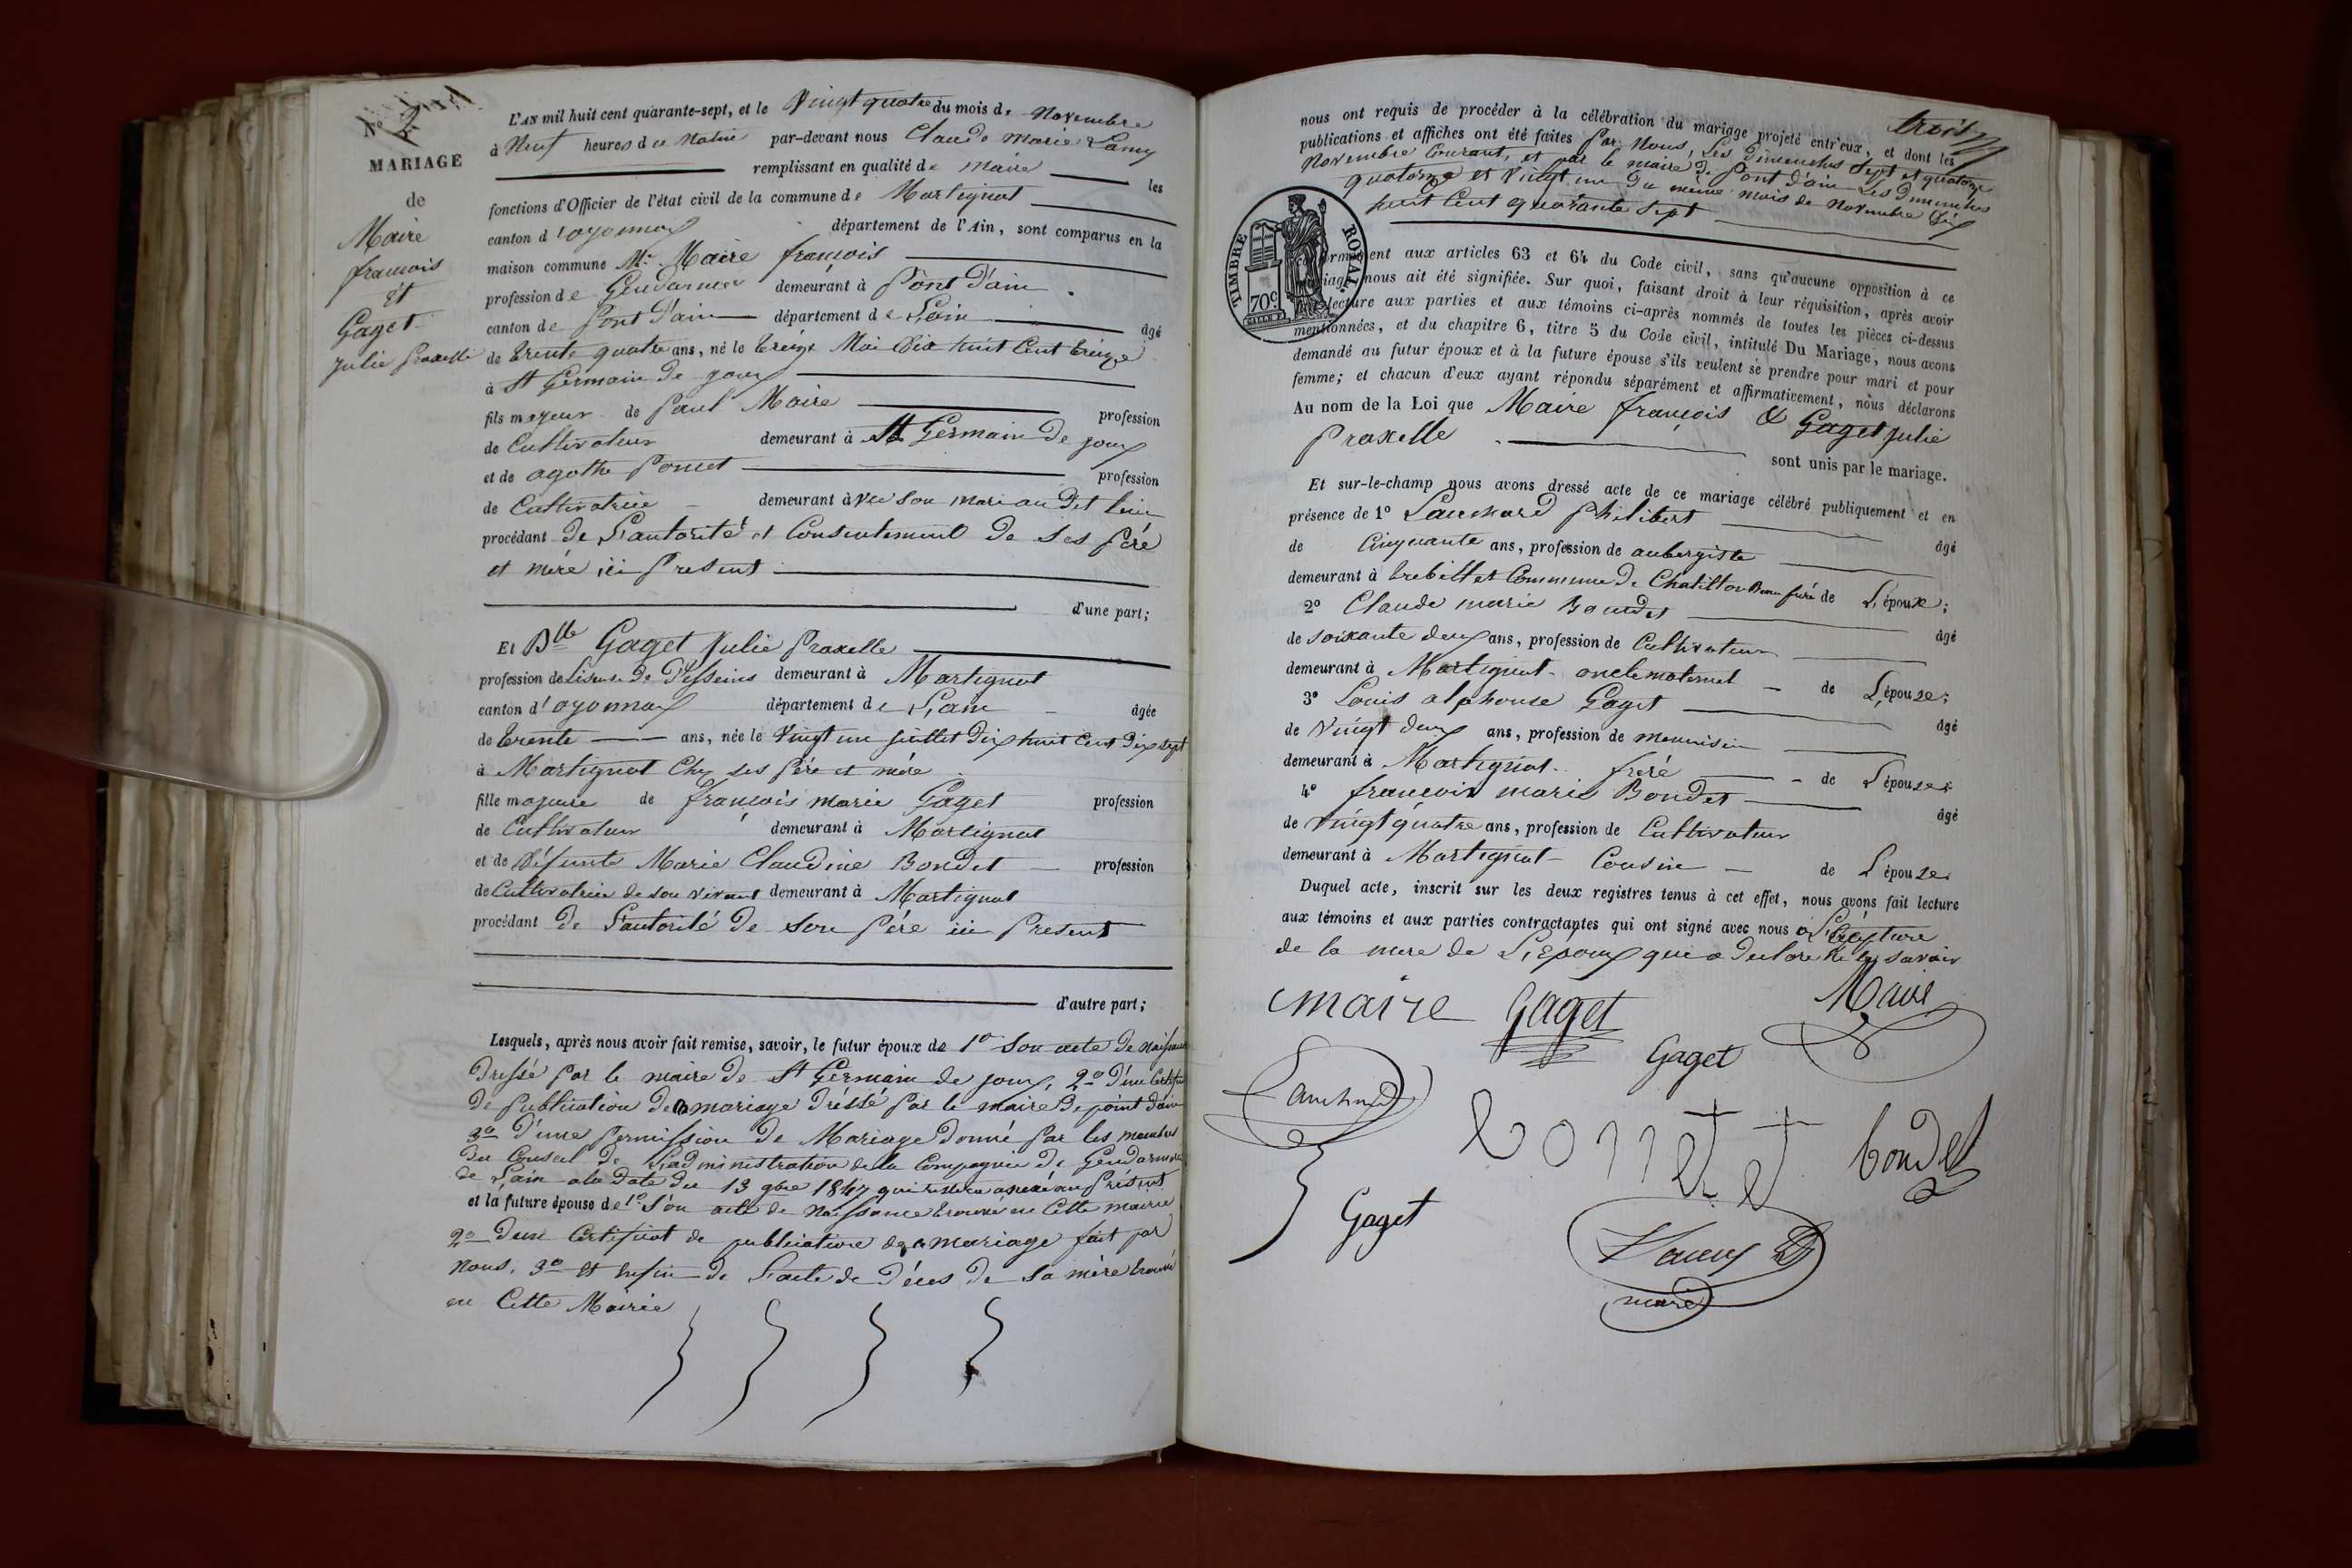 N° 4
MARIAGE
de
Maire
françois
Et
Gaget
Julie Praxelle
L'AN mil huit cent quarante-sept, et le Vingt quatre du mois de Novembre
à Neuf heures du Matin par-devant nous Claude Marie Lamy
remplissant en qualité de Maire les
fonctions d'Officier de l'état civil de la commune de Martignat
canton d'oyonnax département de l'Ain, sont comparus en la
maison commune Mr. Maire françois
profession de Gendarme demeurant à Pont d'ain
canton de Pont d'ain département de L'ain âgé
de trente quatre ans, né le treize Mai Dix huit Cent treize
à St Germain de joux
fils majeur de Paul Maire profession
de Cultivateur demeurant à St Germain de joux
et de agathe Poncet profession
de Cultivatrice demeurant à vec son mari au dit lieu
procédant de L'autorité et Consentement de ses Péré
et méré ici Present
d'une part;
Et Dlle Gaget Julie Praxelle
profession de Liseuse de Desseins demeurant à Martignat
canton d'oyonnax département de L'ain âgée
de trente ans, née le Vingt un juillet Dix huit Cent Dix sept
à Martignat Chez ses Péré et mére
fille majeure de françois marie Gaget profession
de Cultivateur demeurant à Martignat
et de Défunte Marie Claudine Bondet profession
de Cultivatrice de son vivant demeurant à Martignat
procédant de L'autorité de son Pére ici Present
d'autre part;
Lesquels, après nous avoir fait remise, savoir, le futur époux de 1° son acte de Naissance
Dressé Par le maire de St Germain de joux, 2° D'un Certificat
de Publication de mariage Dréssé Par le maire de point d'ain
3° D'une Permission de Mariage donné Par les membres
du Conseil de L'administration de la Compagnie de Gendarmerie
de L'ain a la date du 13 9bre 1847 qui restera anexé au Présent
et la future épouse de 1° Son acte de Naissance trouvé en Cette mairie
2° D'un Certificat de publication de mariage fait par
Nous, 3° Et Enfin de L'acte de Déces de Sa mère trouvé
en Cette Mairie
nous ont requis de procéder à la célébration du mariage projeté entr'eux, et dont les
publications et affiches ont été faites Par Nous, Les Dimenches Sept et quatorze
Novembre Courant, et par le maire de Pont d'ain Les Dimenches
quatorze et Vingt un du même mois de Novembre Dix
huit Cent quarante Sept
TIMBRE ROYAL.
70c.
conformément aux articles 63 et 64 du Code civil, sans qu'aucune opposition à ce
mariage nous ait été signifiée. Sur quoi, faisant droit à leur réquisition, après avoir
lecture aux parties et aux témoins ci-après nommés de toutes les pièces ci-dessus
mentionnées, et du chapitre 6, titre 5 du Code civil, intitulé Du Mariage, nous avons
demandé au futur époux et à la future épouse s'ils veulent se prendre pour mari et pour
femme; et chacun d'eux ayant répondu séparément et affirmativement, nous déclarons
Au nom de la Loi que Maire françois & Gaget julie
Praxelle
sont unis par le mariage.
Et sur-le-champ nous avons dressé acte de ce mariage célébré publiquement et en
présence de 1° Philibert
âgé
de Cinquante ans, profession de aubergiste
demeurant à trebillet Commune de Chatillon de L'époux;
2° Claude marie Bondet
âgé
de soixante deux ans, profession de Cultivateur
demeurant à Martignat oncle maternel de L'épouse;
3° Louis alphonse Gaget
âgé
de Vingt deux ans, profession de menuisier
demeurant à Martignat frère de L'épouse;
4° françois marie Bondet
âgé
de Vingt quatre ans, profession de Cultivateur
demeurant à Martignat Cousin de L'épouse
Duquel acte, inscrit sur les deux registres tenus à cet effet, nous avons fait lecture
aux témoins et aux parties contractantes qui ont signé avec nous
de la mere de L'Epoux qui a declaré ne le savoir
maire Gaget Maire
Gaget
bondet
Gaget
Lamy
maire